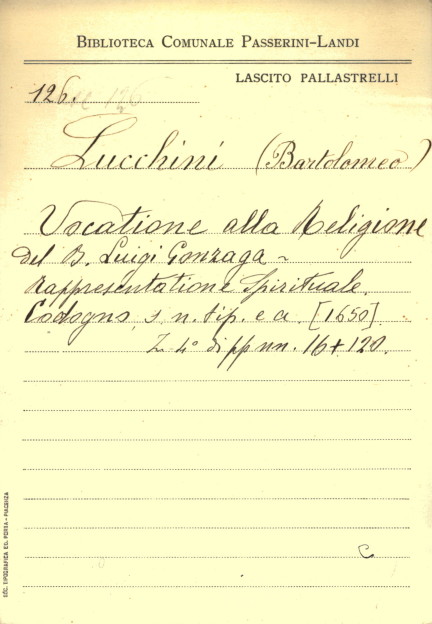 BIBLIOTECA COMUNALE PASSERINI-LANDI
LASCITO PALLASTRELLI
126.
Lucchini (Bartolomeo)
Vocatione alla Religione
del B. Luigi Gonzaga -
Rappresentatione Spirituale.
Codogno, s. n. tip. e a. [1650].
Z 4° di pp nn. 16+120.
C
SOC. TIPOGRAFICA ED. PORTA - PIACENZA